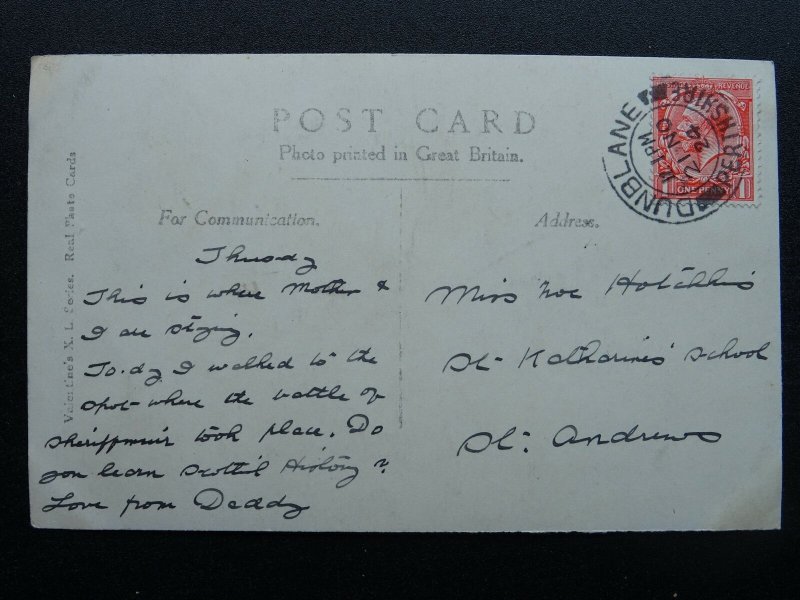 POST CARD
Photo printed in Great Britain.
For Communication.
Address.
Valentine's X. L. Series. Real Photo Cards
DUNBLANE
PERTHSHIRE
PM
21 NO
24
POSTAGE REVENUE
1 ONE PENNY 1
Thursdy
This is where Mother &
I are stying.
To.dy I walked to the
spot where the battle of
Sheriffmuir took place. Do
you learn Scottish History?
Love from Daddy
Miss Zoe Hotchkis
St Katharines' School
St. Andrews